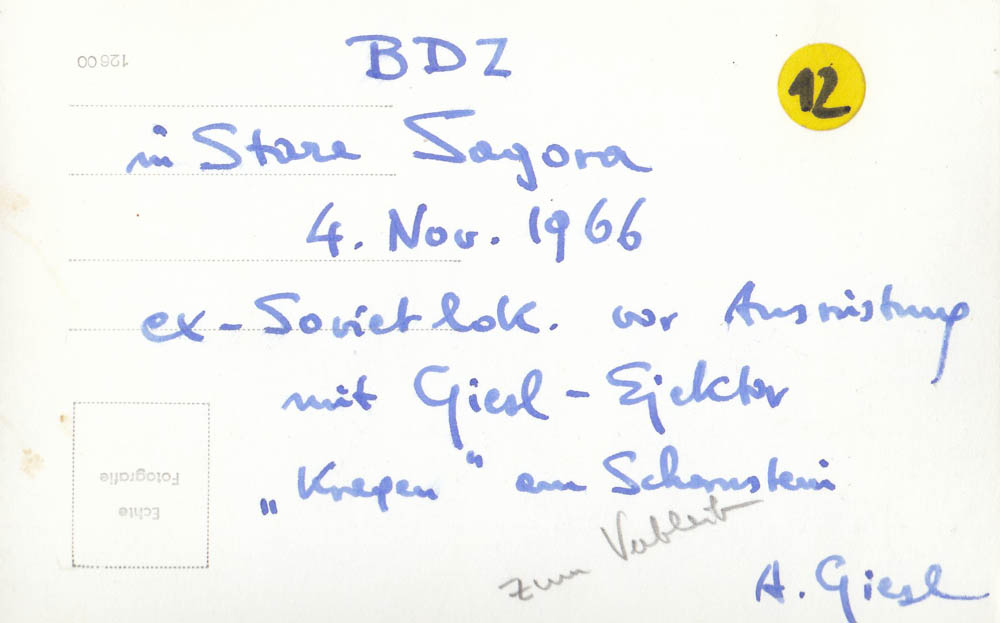 BDZ
12
in Stara Sagora
4. Nov. 1966
ex-Sovietlok. vor Ausrüstung
mit Giesl-Ejektor
„Kragen" am Schornstein
zum
A. Giesl
12600
Echte
Fotografie